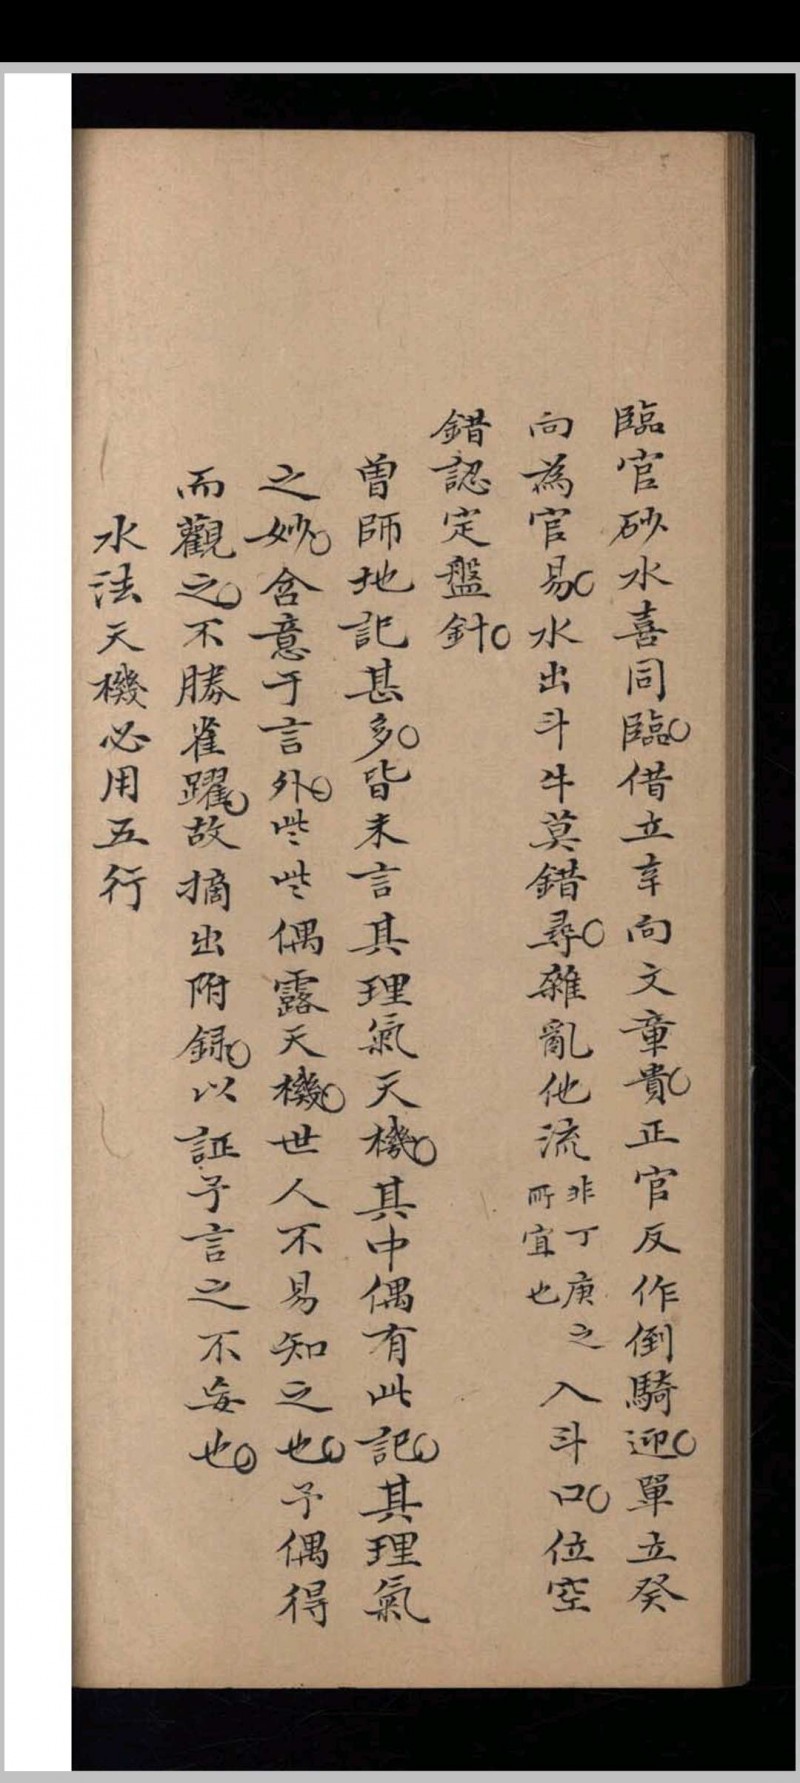 臨官砂水喜同臨○借立辛向文章貴○正官反作倒騎迎○單立癸
向為官易○水出斗牛莫錯尋○雜亂他流非丁庚之所宜也入斗口○位空
錯認定盤針○
曾師地記甚多○皆未言其理氣天機○其中偶有此記○其理氣
之妙○含意于言外○些些偶露天機○世人不易知之也○予偶得
而觀之○不勝雀躍○故摘出附録○以証予言之不妄也○
水法天機必用五行